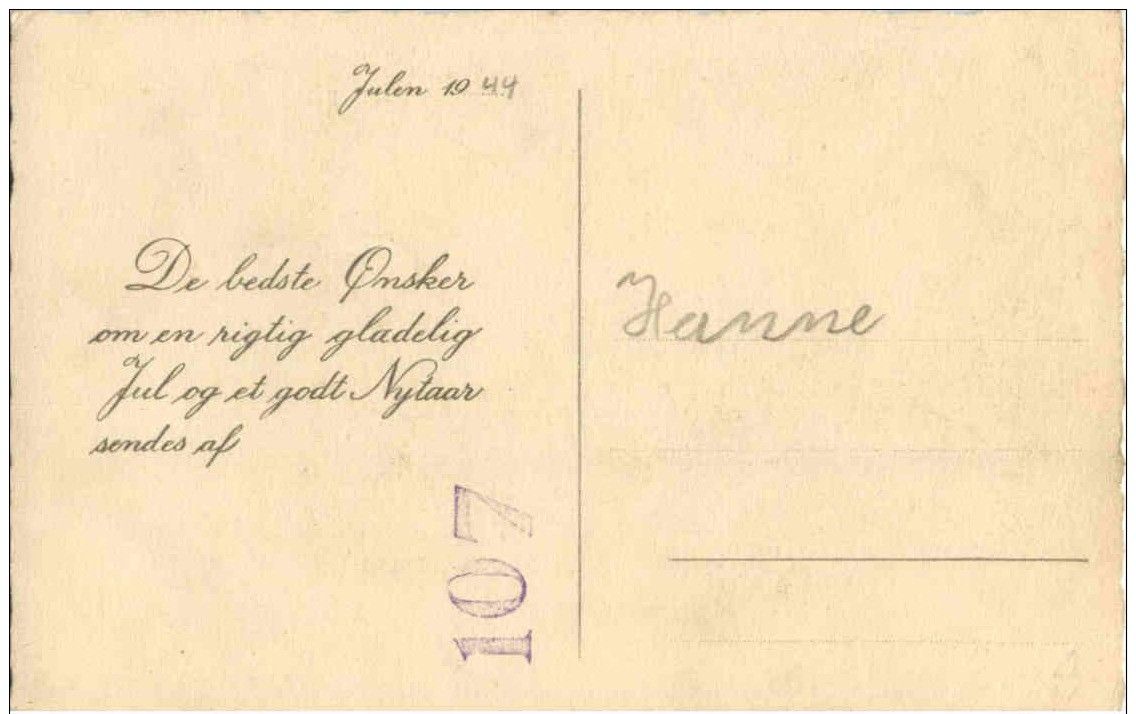 Julen 1944
De bedste Ønsker
om en rigtig glædelig
Jul og et godt Nytaar
sendes af
107
Hanne